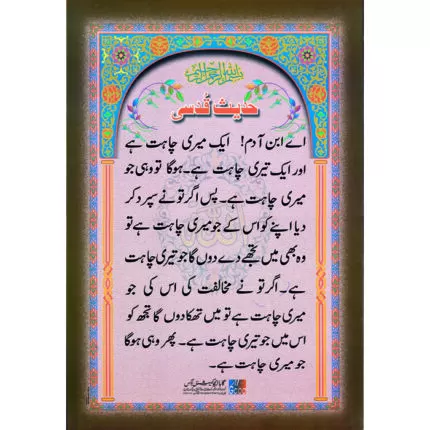 بسم الله الرحمن الرحيم
حدیث قدسی
اے ابن آدم! ایک میری چاہت ہے
اور ایک تیری چاہت ہے۔ ہوگا تو وہی جو
میری چاہت ہے۔ پس اگر تو نے سپرد کر
دیا اپنے کو اس کے جو میری چاہت ہے تو
وہ بھی میں تجھے دے دوں گا جو تیری چاہت
ہے۔ اگر تو نے مخالفت کی اس کی جو
میری چاہت ہے تو میں تھکا دوں گا تجھ کو
اس میں جو تیری چاہت ہے۔ پھر وہی ہوگا
جو میری چاہت ہے۔